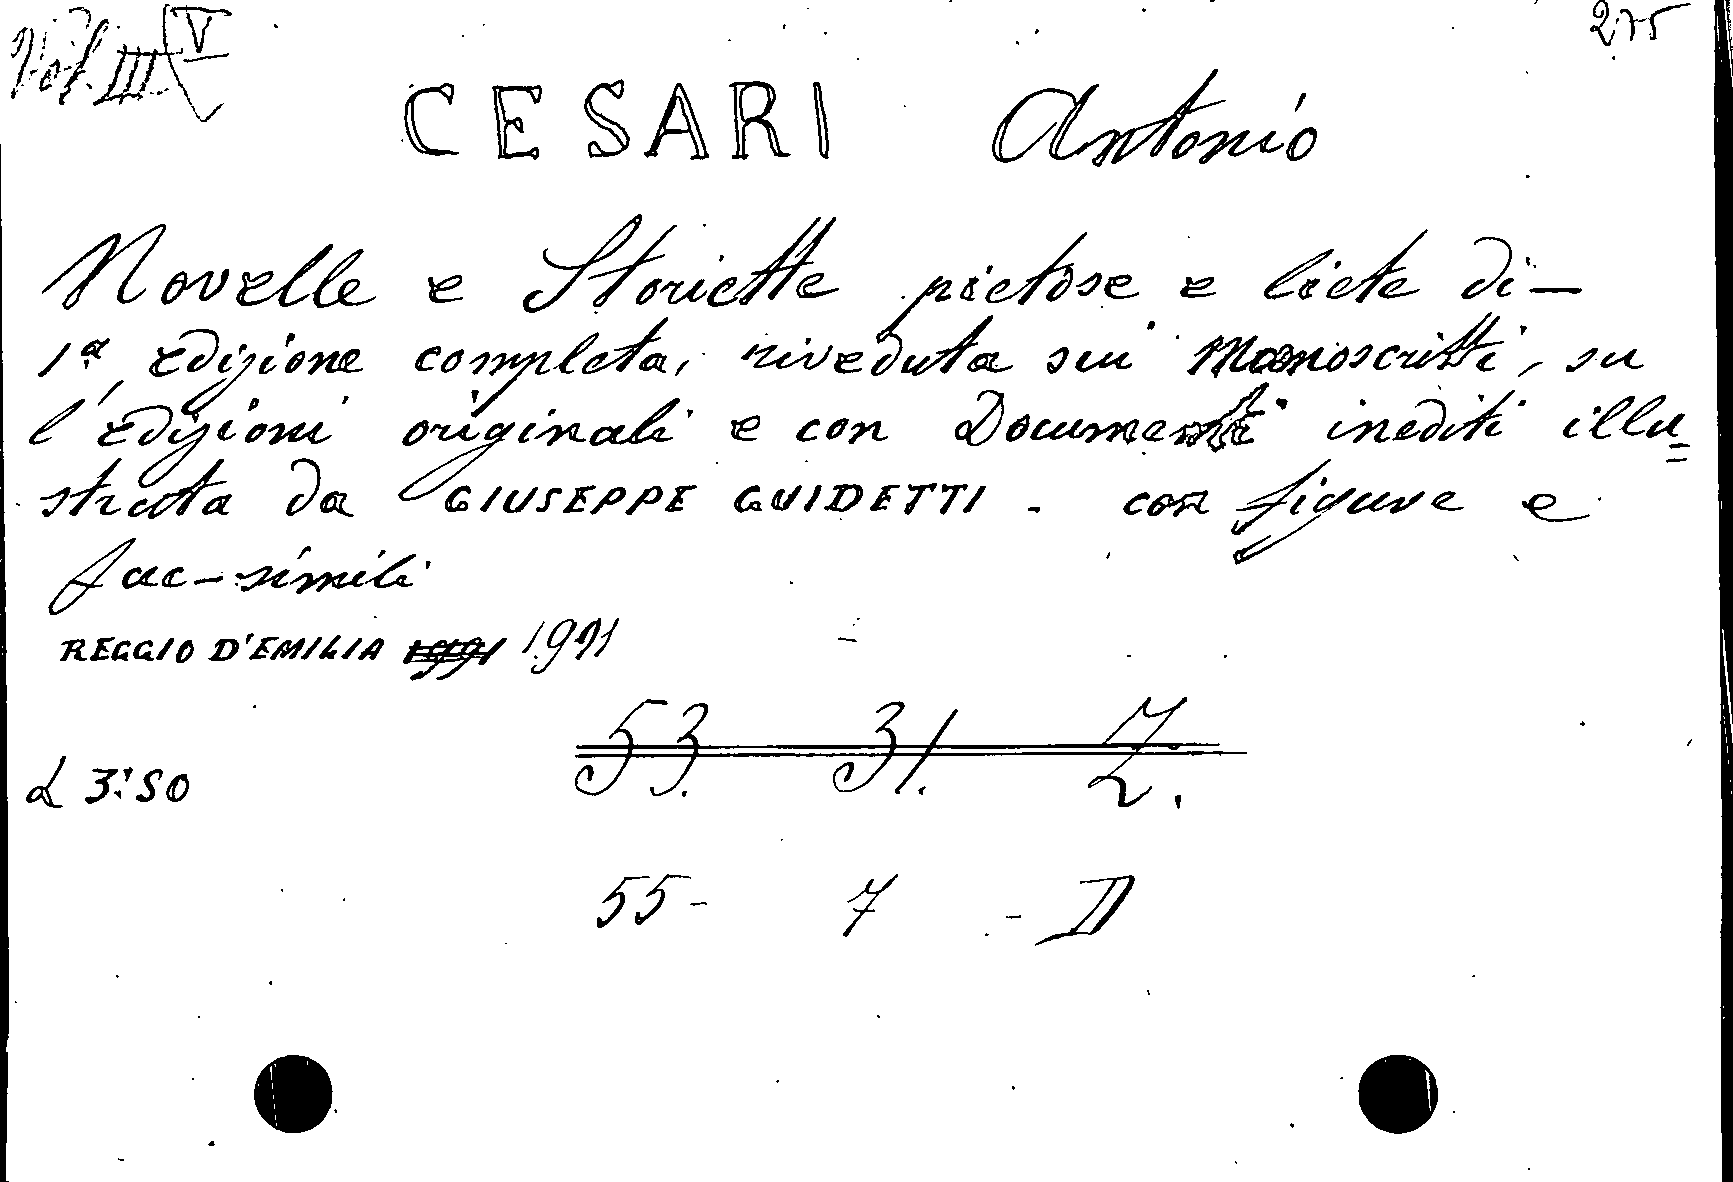 Vol. III V
275
CESARI Antonio
Novelle e Storiette pietose e liete di —
1ª edizione completa, riveduta sui Manoscritti, su
l'edizioni originali e con Documenti inediti illu=
strata da GIUSEPPE GUIDETTI - con figure e
fac-simili
REGGIO D'EMILIA 1991 1991
53. 31. Z.
L 3:50
55 - 7 - D